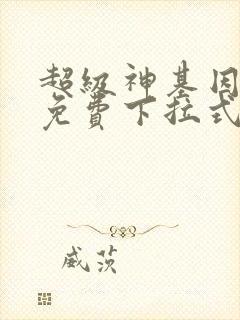 超级神基因
免费下拉式
威茨